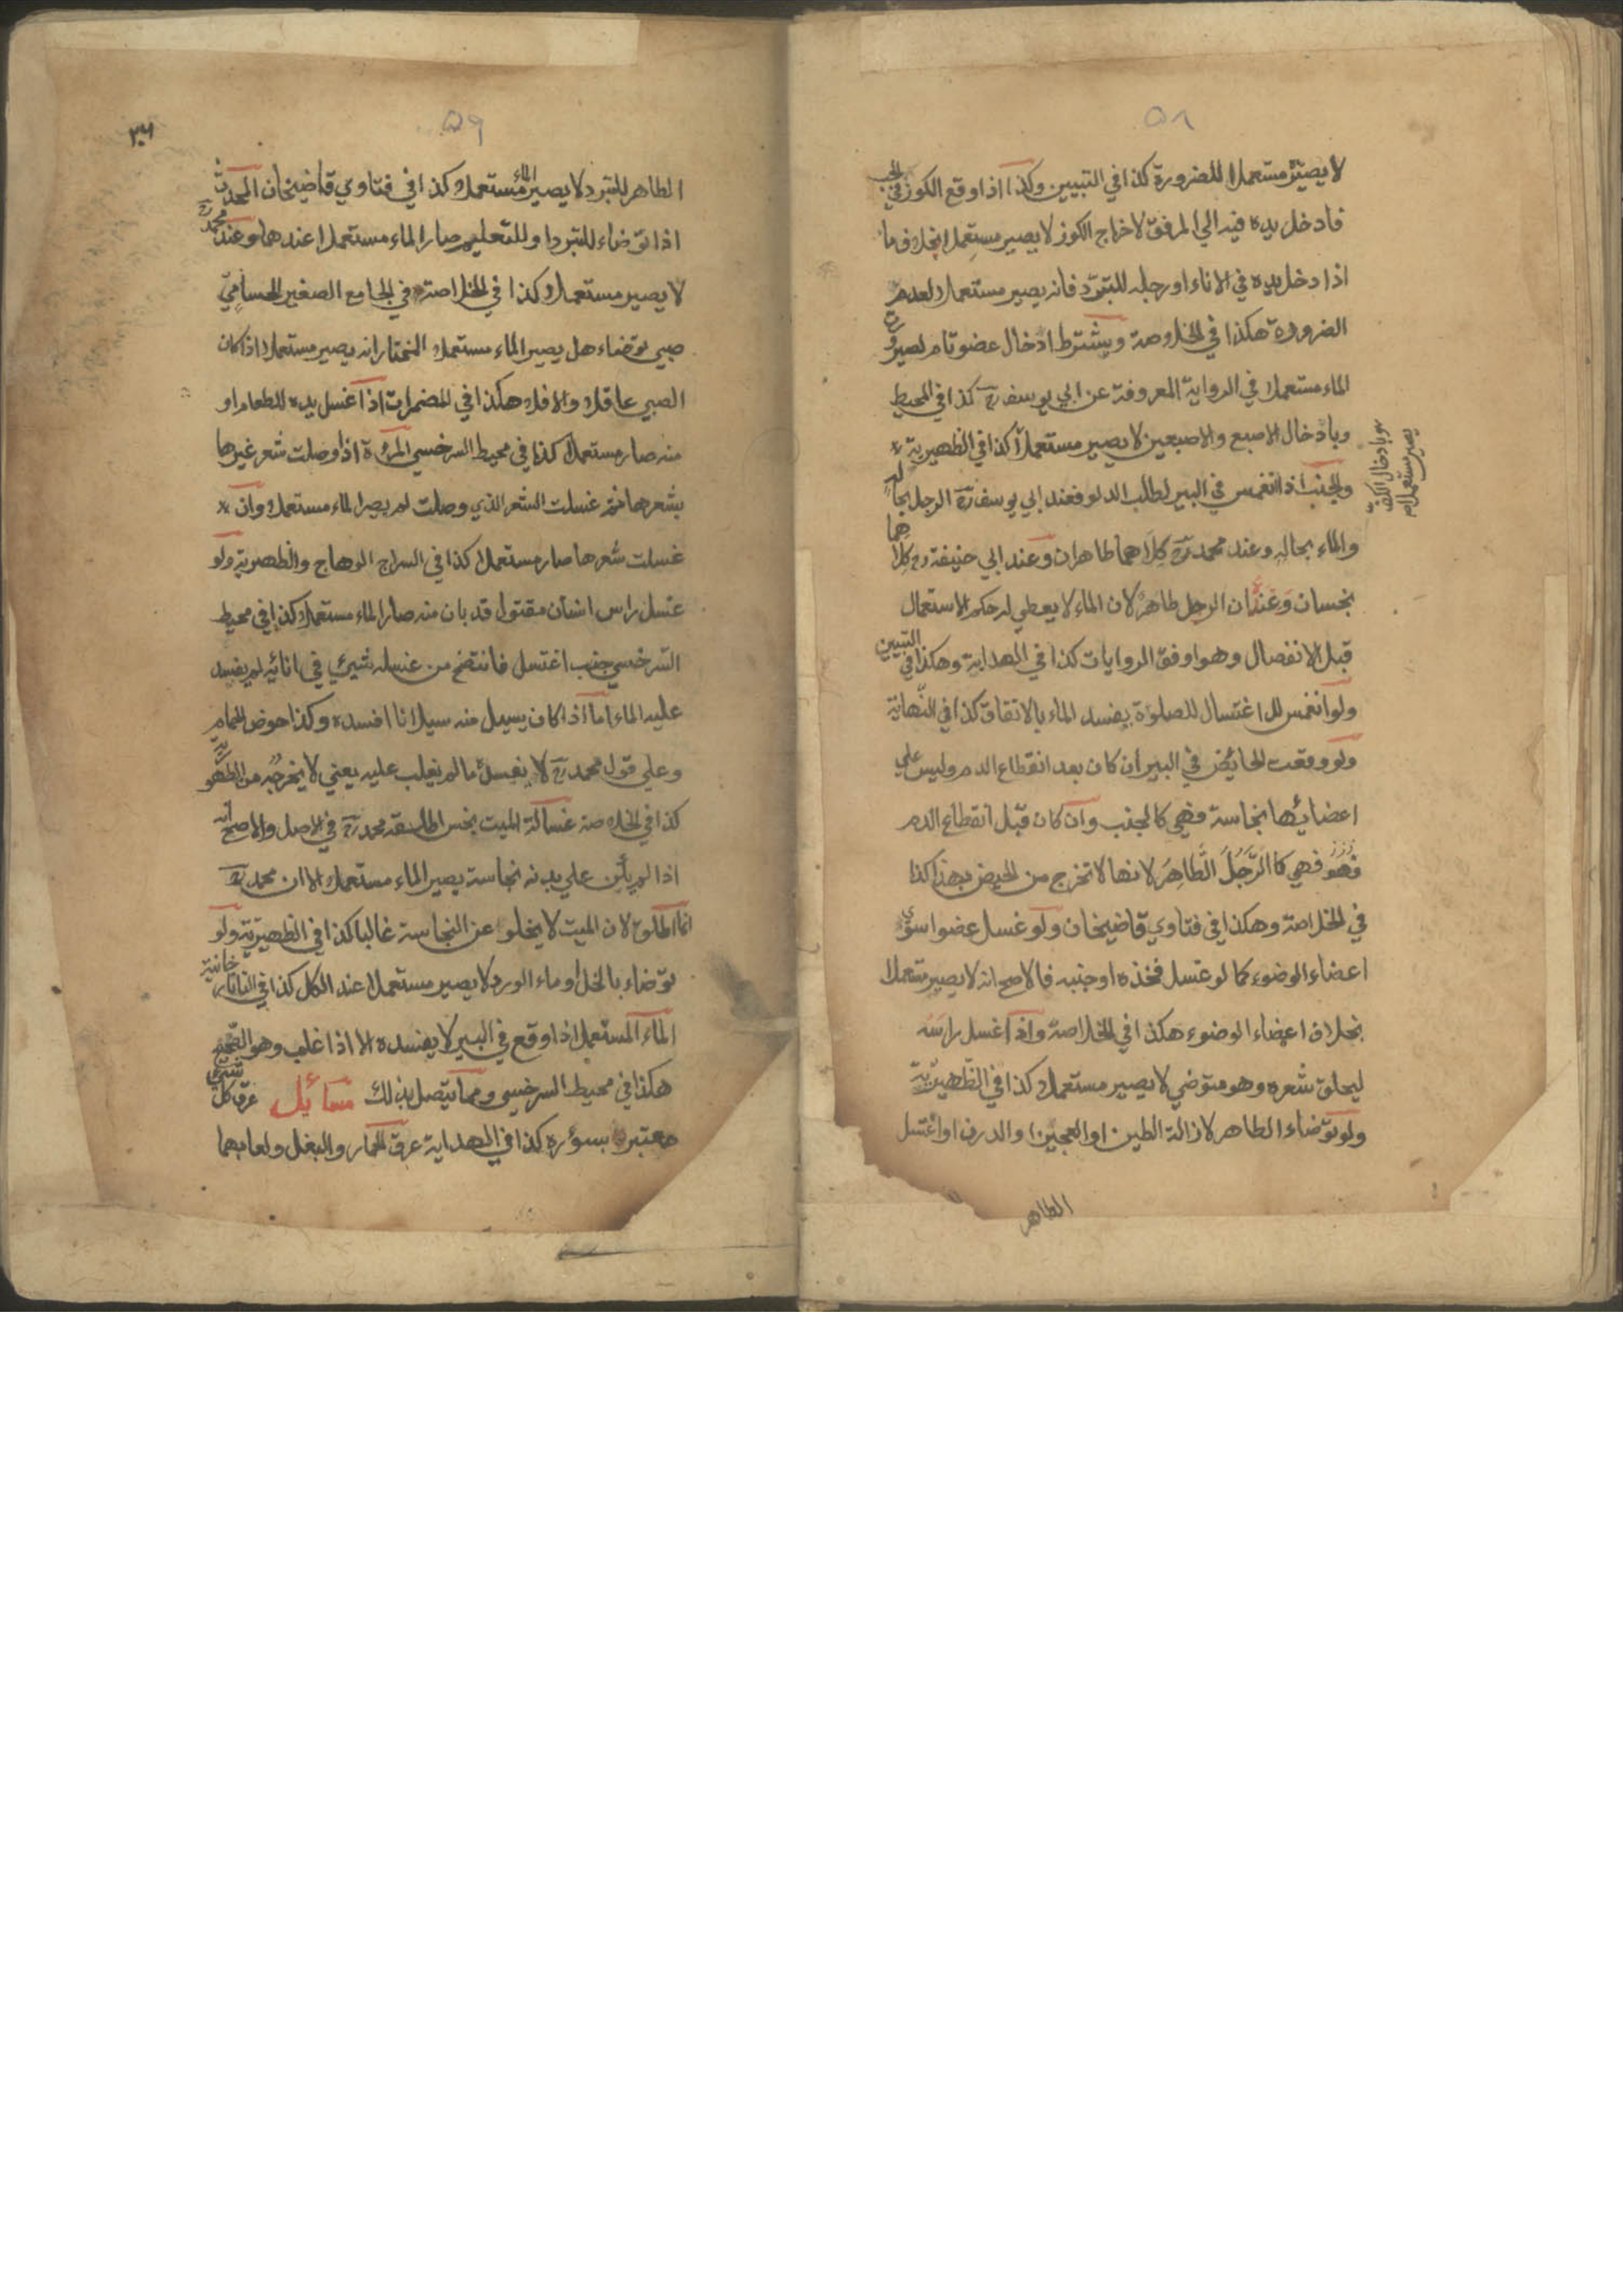 ٥٨
لا يصير مستعملا للضرورة كذا في التبيين وكذا اذا وقع الكوز في الحب
فادخل يده فيه الي المرفق لاخراج الكوز لا يصير مستعملا بخلاف ما
اذا دخل يده في الاناء او رجله للتبرد فانه يصير مستعملا لعدم
الضرورة هكذا في الخلاصة ويشترط ادخال عضو تام لصيرورت
الماء مستعملا في الرواية المعروفة عن ابي يوسف رح كذا في المحيط
وبادخال الاصبع والاصبعين لا يصير مستعملا كذا في الظهيرية
وبادخال الكف
يصير مستعملا م
والجنب اذا انغمس في البير لطلب الدلو فعند ابي يوسف رح الرجل بحاله
والماء بحاله وعند محمد رح كلاهما طاهران وعند ابي حنيفة رح كلاهما
نجسان وعنه ان الرجل طاهر لان الماء لا يعطي له حكم الاستعمال
قبل الانفصال وهو اوفق الروايات كذا في الهداية وهكذا في التبيين
ولو انغمس للاغتسال للصلوة يفسد الماء بالاتفاق كذا في النهاية
ولو وقعت الحائض في البير ان كان بعد انقطاع الدم وليس علي
اعضائها نجاسة فهي كالجنب وان كان قبل انقطاع الدم
فهو فهي كالرجل الطاهر لانها لا تخرج من الحيض بهذا كذا
في الخلاصة وهكذا في فتاوي قاضيخان ولو غسل عضوا سوي
اعضاء الوضوء كما لو غسل فخذه او جنبه فالاصح انه لا يصير مستعملا
بخلاف اعضاء الوضوء هكذا في الخلاصة واذا غسل راسه
ليحلق شعره وهو متوضي لا يصير مستعملا كذا في الظهيرية
ولو توضاء الطاهر لازالة الطين او العجين او الدرن او اغتسل
الطاهر
٥٩
الطاهر للتبرد لا يصير الماء مستعملا كذا في فتاوي قاضيخان المحدث
اذا توضاء للتبرد او للتعليم صار الماء مستعملا عندهما وعند محمد رح
لا يصير مستعملا كذا في الخلاصة في الجامع الصغير الحسامي
صبي توضاء هل يصير الماء مستعملا المختار انه يصير مستعملا اذا كان
الصبي عاقلا والا فلا هكذا في المضمرات اذا غسل يده للطعام او
منه صار مستعملا كذا في محيط السرخسي المرءة اذا وصلت شعر غيرها
بشعرها ثم غسلت الشعر الذي وصلت لم يصر الماء مستعملا وان
غسلت شعرها صار مستعملا كذا في السراج الوهاج والظهيرية ولو
غسل راس انسان مقتول قد بان منه صار الماء مستعملا كذا في محيط
السرخسي جنب اغتسل فانتضح من غسله شيئ في انائه لم يفسد
عليه الماء اما اذا كان يسيل منه سيلانا افسده وكذا حوض الحمام
وعلي قول محمد رح لا يفسده ما لم يغلب عليه يعني لا يخرجه من الطهورية
كذا في الخلاصة غسالة الميت نجس اطلقه محمد رح في الاصل والاصح انه
اذا لم يكن علي بدنه نجاسة يصير الماء مستعملا الا ان محمد رح
انما اطلق لان الميت لا يخلو عن النجاسة غالبا كذا في الظهيرية ولو
توضاء بالخل او ماء الورد لا يصير مستعملا عند الكل كذا في التاتارخانية
الماء المستعمل اذا وقع في البير لا يفسده الا اذا غلب وهو الصحيح
هكذا في محيط السرخسي ومما يتصل بذلك مسائيل عرق كل شيئ
معتبر بسؤره كذا في الهداية عرق الحمار والبغل ولعابهما